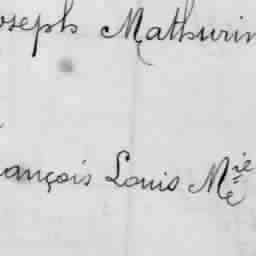 oseph Mathurin
ançois Louis M^ie